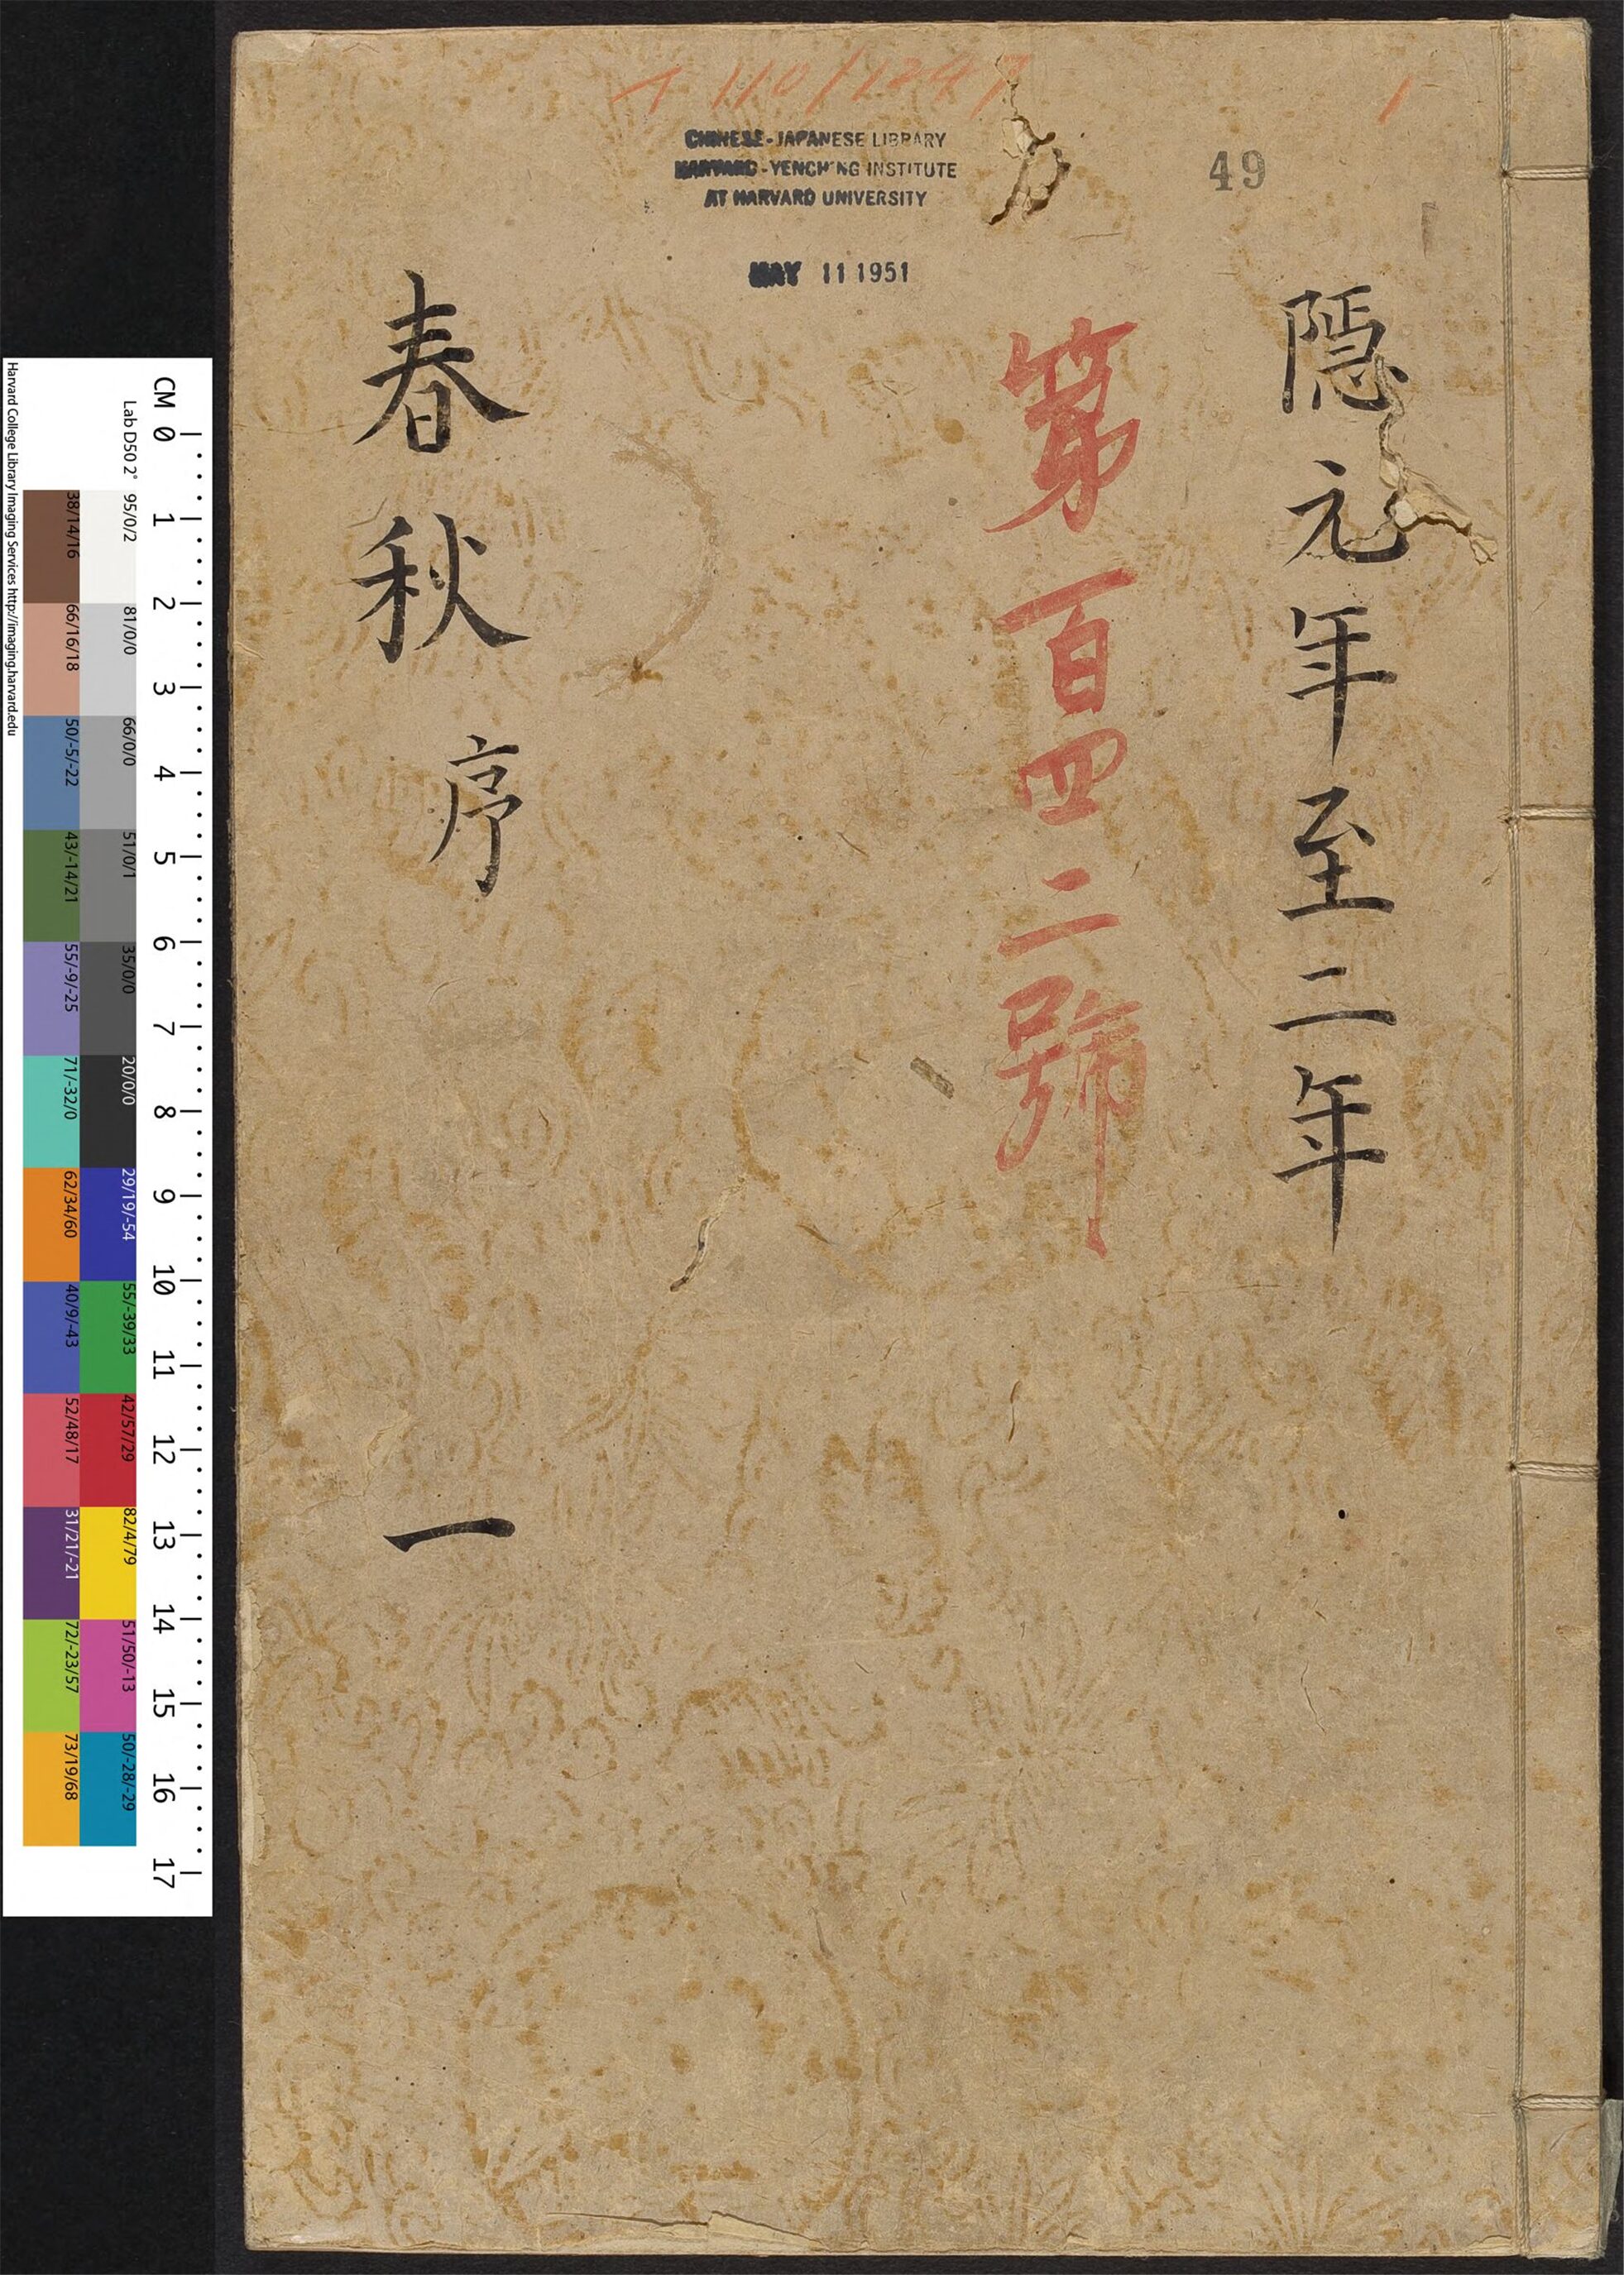 T 110/1247
1
CHINESE-JAPANESE LIBRARY
HARVARD-YENCHING INSTITUTE
AT HARVARD UNIVERSITY
49
MAY 11 1951
隱元年至二年
第百四二號
春秋序
一
Harvard College Library Imaging Services http://imaging.harvard.edu
Lab D50 2°
CM 0 1 2 3 4 5 6 7 8 9 10 11 12 13 14 15 16 17
95/0/2 81/0/0 66/0/0 51/0/1 35/0/0 20/0/0 29/19/-54 55/-39/33 42/57/29 82/4/79 51/50/-13 50/-28/-29
38/14/16 66/16/18 50/-5/-22 43/-14/21 55/-9/-25 71/-32/0 62/34/60 40/9/-43 52/48/17 31/21/-21 72/-23/57 73/19/68